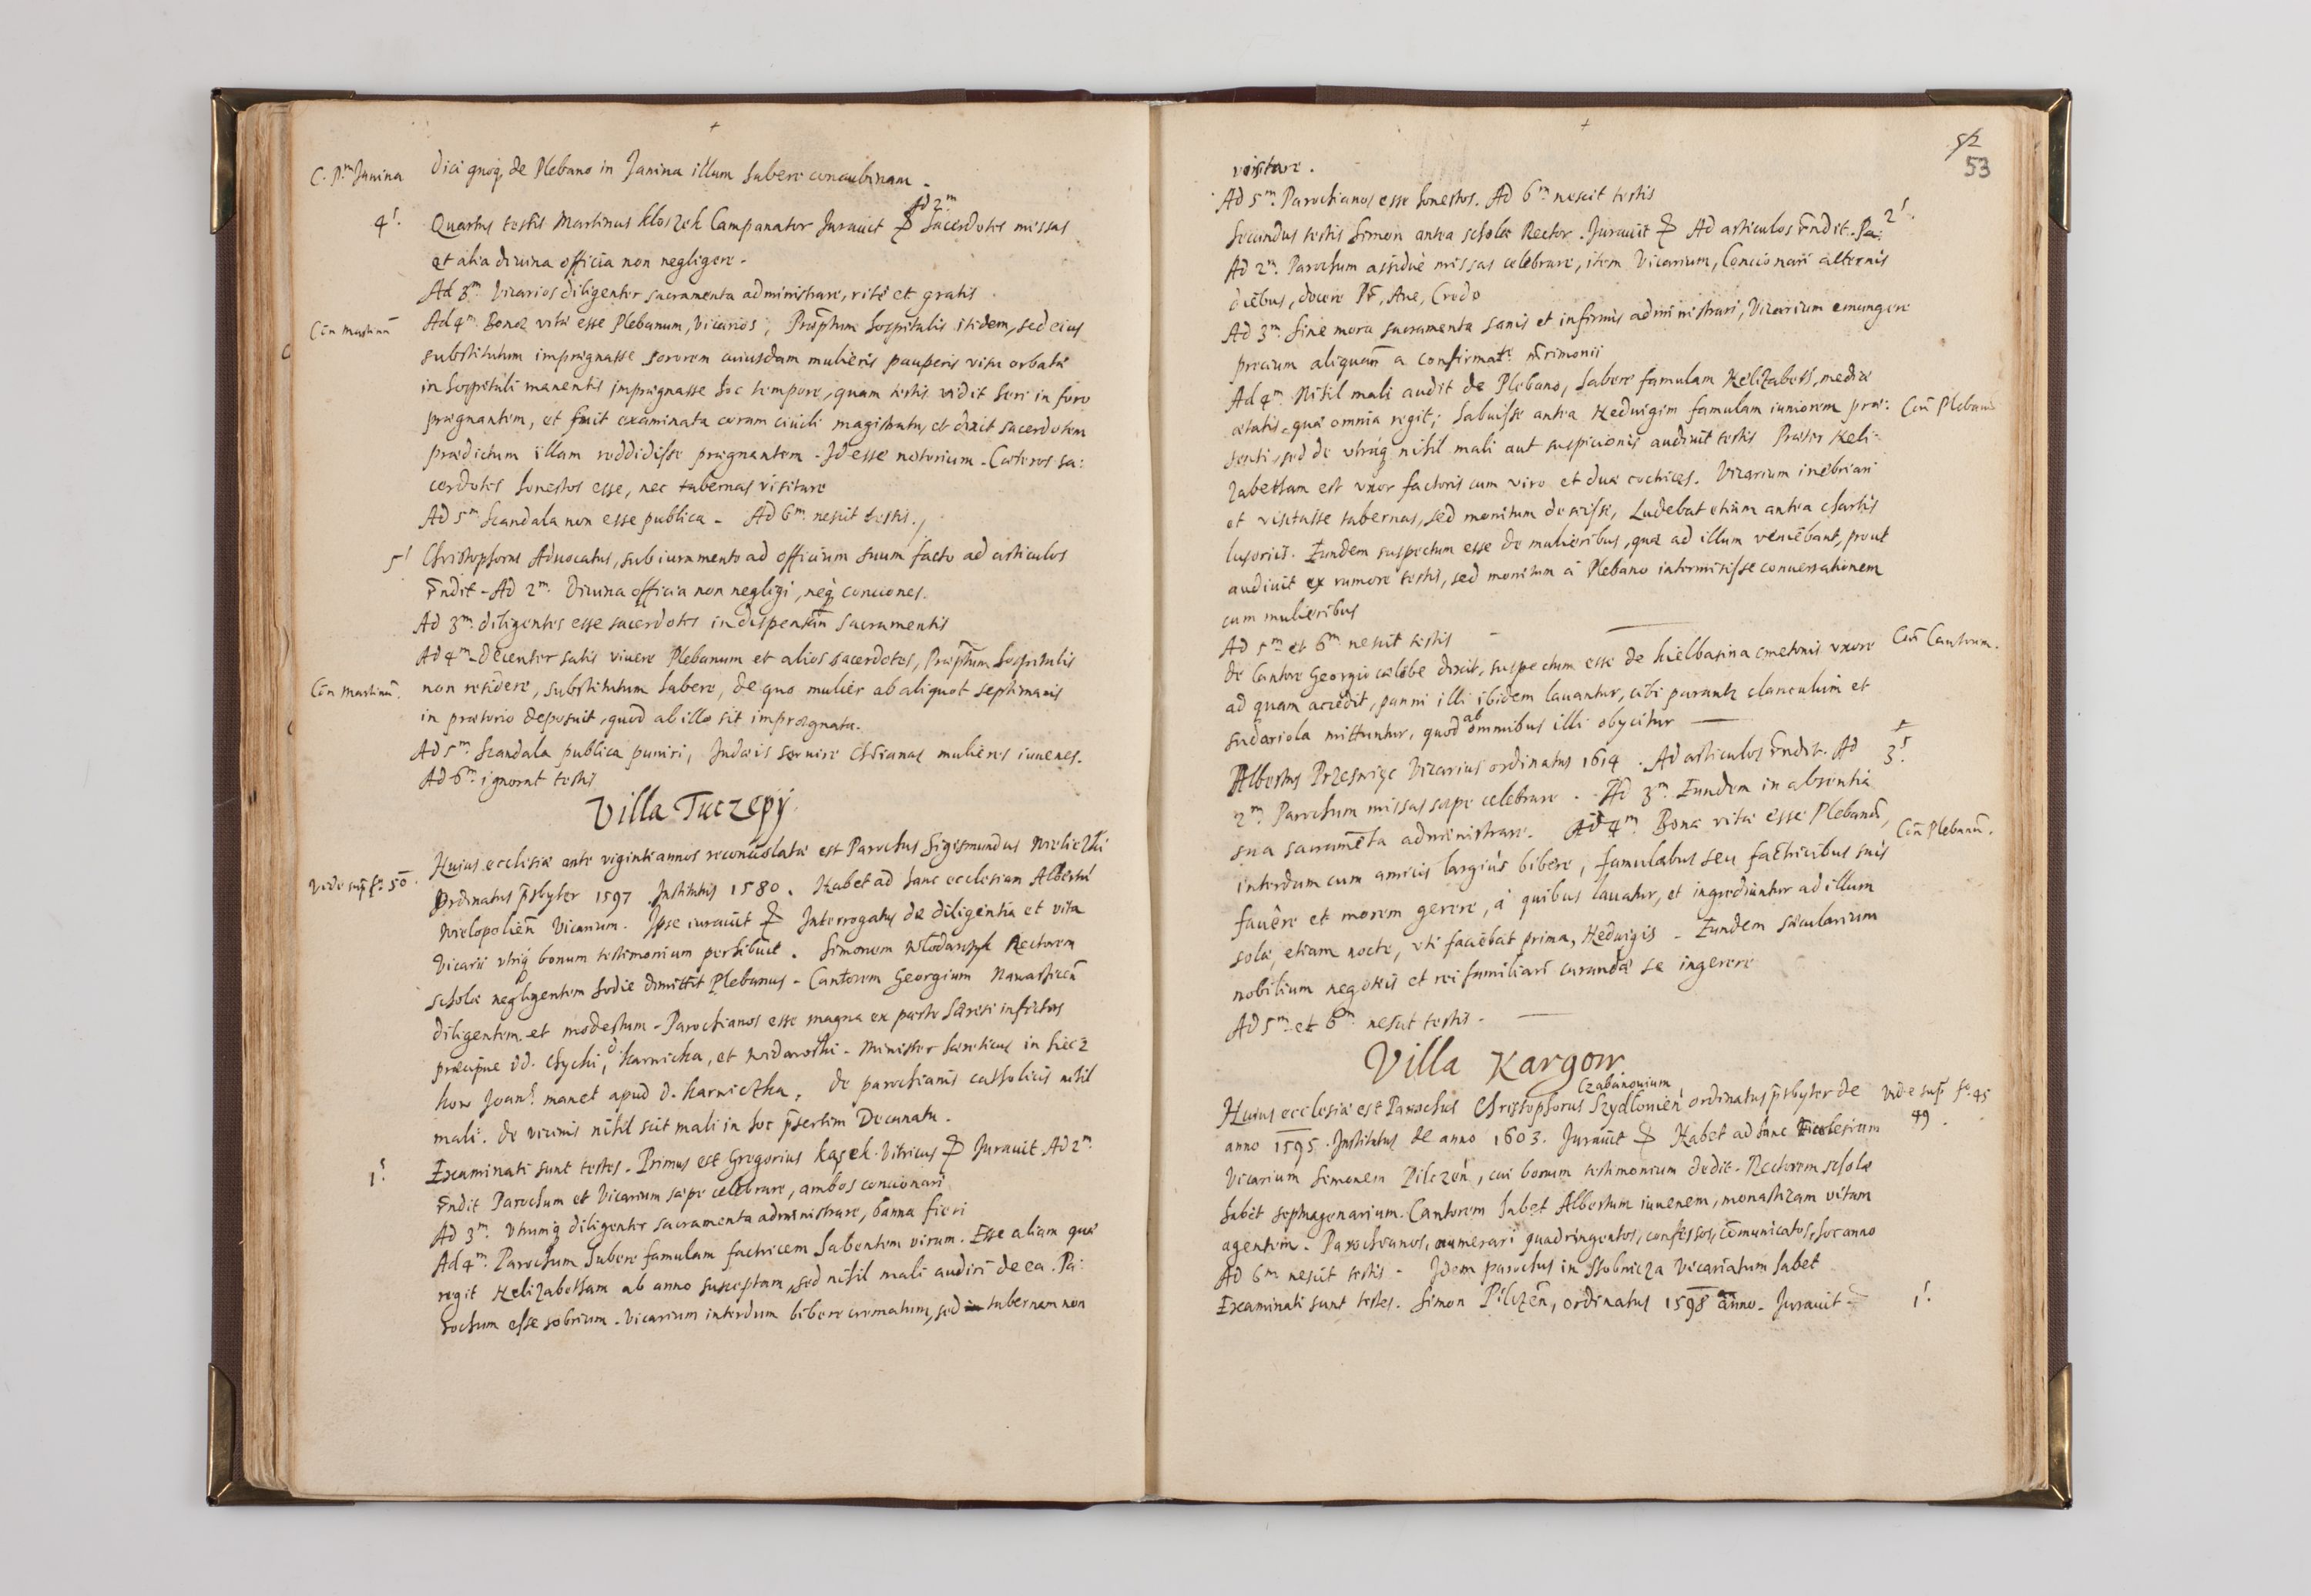 +
C. Pm Janina
dici quoq de Plebano in Janina illum habere concubinam.
Ad 2m
4s.
Quartus testis Martinus Kloszek Campanator Jurauit Sacerdotes missas
et alia diuina officia non negligere.
Ad 3m Vicarios diligenter sacramenta administrare, rite et gratis
Con martinū
Ad 4m Bonae vitae esse Plebanum, Vicarios, Praeptum hospitalis itidem, sed eius
substitutum impraegnasse sororem cuiusdam mulieris pauperis visu orbatae
in hospitali manentis impraegnasse hoc tempore, quam testis vidit heri in foro
praegnantem, et fuit examinata coram ciuili magistratu, et dixit sacerdotem
praedictum illam reddidisse praegnantem. Id esse notorium. Caeteros sa:
cerdotes honestos esse, nec tabernas visitare
Ad 5m Scandala non esse publica. Ad 6m nescit testis.
5s
Christophorus Aduocatus, sub iuramento ad officium suum facto ad articulos
rndit. Ad 2m. Diuina officia non negligi, neq conciones.
Ad 3m. diligentes esse sacerdotes in dispensan sacramentis
Ad 4m. decenter satis viuere Plebanum et alios sacerdotes, Praeptum hospitalis
Con martinū.
non residere, substitutum habere, de quo mulier ab aliquot septimanis
in praetorio deposuit, quod ab illo sit impraegnata.
Ad 5m. Scandala publica puniri, Judaeis seruire Chrianas mulieres iuuenes.
Ad 6m. ignorat testis
Villa Tuczepÿ
Huius ecclesiae ante viginti annos reconciliatae est Parochus Sigismundus Wieliczki
Vide sup. fo. 50.
Ordinatus psbyter 1597 Institutus 1580. Habet ad hanc ecclesiam Albertū
Wielopolien Vicarium. Ipse iurauit Interrogatus de diligentia et vita
Vicarii vtriq bonum testimonium perhibuit. Simonem Wlodarczyk Rectorem
scholae negligentem hodie dimittit Plebanus. Cantorem Georgium
diligentem et modestum. Parochianos esse magna ex parte haeresi infectos
praecipue DD. Chychi, d Karnicka, et Widawski. Minister haereticus in Siecz
kow Joans. manet apud D. Karniczka. De parochianis catholicis nihil
mali. De vicinis nihil scit mali in hoc psertim Decanatu.
1s.
Examinati sunt testes. Primus est Gregorius Kasek Vitricus Jurauit. Ad 2m.
rndit Parochum et Vicarium saepe celebrare, ambos concionari
Ad 3m. Vtrumq diligenter sacramenta administrare, banna fieri
Ad 4m. Parochum habere famulam factricem habentem virum. Esse aliam quae
regit Helizabetham ab anno susceptam, sed nihil mali audiri de ea. Pa:
rochum esse sobrium. Vicarium interdum bibere crematum, sed in tabernam non
+
52
53
visitare.
Ad 5m. Parochianos esse honestos. Ad 6m nescit testis
Secundus testis Simon antea scholae Rector. Jurauit Ad articulos rndit. Pa:
2s.
Ad 2m. Parochum assidue missas celebrare, item Vicarium, Concionari alternis
diebus, docere Pr, Aue, Credo
Ad 3m. Sine mora sacramenta sanis et infirmis administrari, Vicarium emungere
precium aliquan a confirmate mrimonii
Ad 4m. Nihil mali audit de Plebano, habere famulam Helizabeth, mediae
aetatis quae omnia regit; habuisse antea Heduigim famulam iuniorem prae:
Con Plebanū
senti, sed de vtraq nihil mali aut suspicionis audiuit testis Praeter Heli:
zabetham est vxor factoris cum viro et duae coctrices. Vicarium inebriari
et visitasse tabernas, sed monitum desiisse, Ludebat etiam antea chartis
lusoriis. Eundem suspectum esse de mulieribus, quae ad illum veniebant, prout
audiuit ex rumore testis, sed monitum a Plebano intermisisse conuersationem
cum mulieribus
Ad 5m et 6m nescit testis
Con Cantorem.
de Cantore Georgio caelibe dixit, suspectum esse de Kielbasina cmetonis vxore
ad quam accedit, panni illi ibidem lauantur, cibi parantr clanculum et
sudariola mittuntur, quod ab omnibus illi obycitur
+
3s.
Albertus Przeswigc Vicarius ordinatus 1614. Ad articulos rndit. Ad
2m. Parochum missas saepe celebrare. Ad 3m. Eundem in absentia
sua sacrameta administrare. Ad 4m. Bonae vitae esse Plebanū,
Con Plebanū.
interdum cum amicis largius bibere, famulabus seu factricibus suis
fauere et morem gerere, a quibus lauatur, et ingrediuntur ad illum
solae, etiam nocte, vti faciebat prima, Heduigis. Eundem saecularium
nobilium negotiis et rei familiari curandae se ingerere
Ad 5m et 6m nescit testis.
Villa Kargow
Czabanouium
Huius ecclesiae est Parochus Christophorus Szydlouien ordinatus psbyter de
Vide sup fo. 45
49.
anno 1595. Institutus de anno 1603. Jurauit Habet ad hanc Ecclesiam
Vicarium Simonem Pilczen, cui bonum testimonium dedit. Rectorem scholae
habet septuagenarium. Cantorem habet Albertum iuuenem, monasticam vitam
agentem. Parochianos, numerari quadringentos, confessos, comunicatos, hoc anno
Ad 6m nescit testis. Idem parochus in Stobnicza Vicariatum habet
Examinati sunt testes. Simon Pilczen, ordinatus 1598 anno. Jurauit
1s.